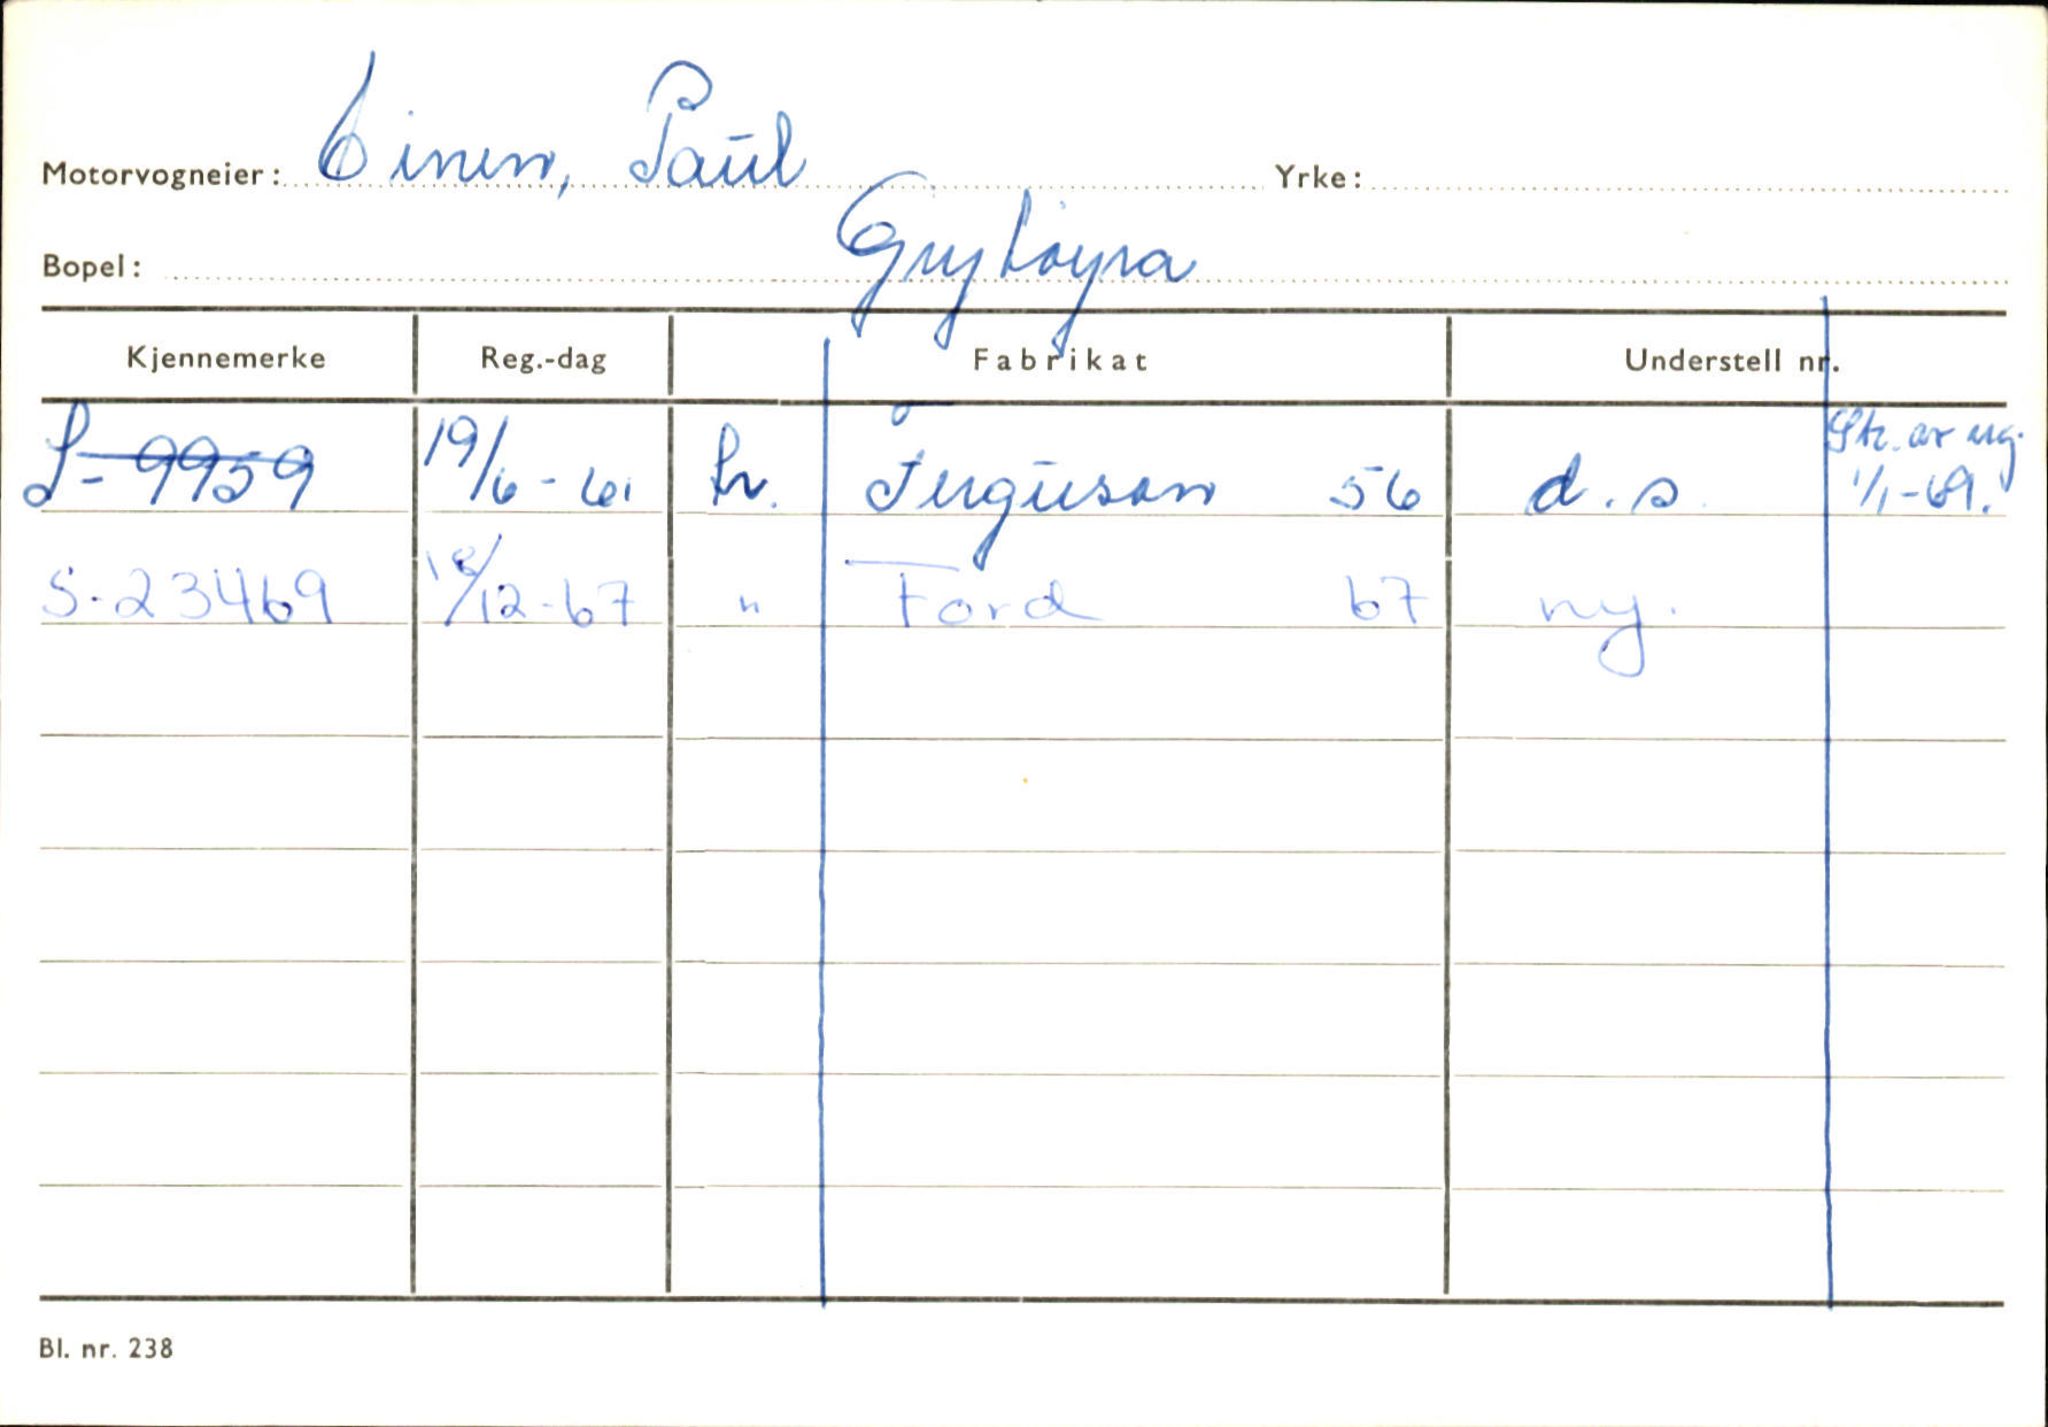 Motorvogneier: Vinen, Paul Yrke:
Bopel: Grytøyra
Kjennemerke Reg.-dag Fabrikat Understell nr.
S-9959 19/6-61 tr. Ferguson 56 d.s. Str. av reg. 1/1-69.
S-23469 18/12-67 " Ford 67 ny.
Bl. nr. 238